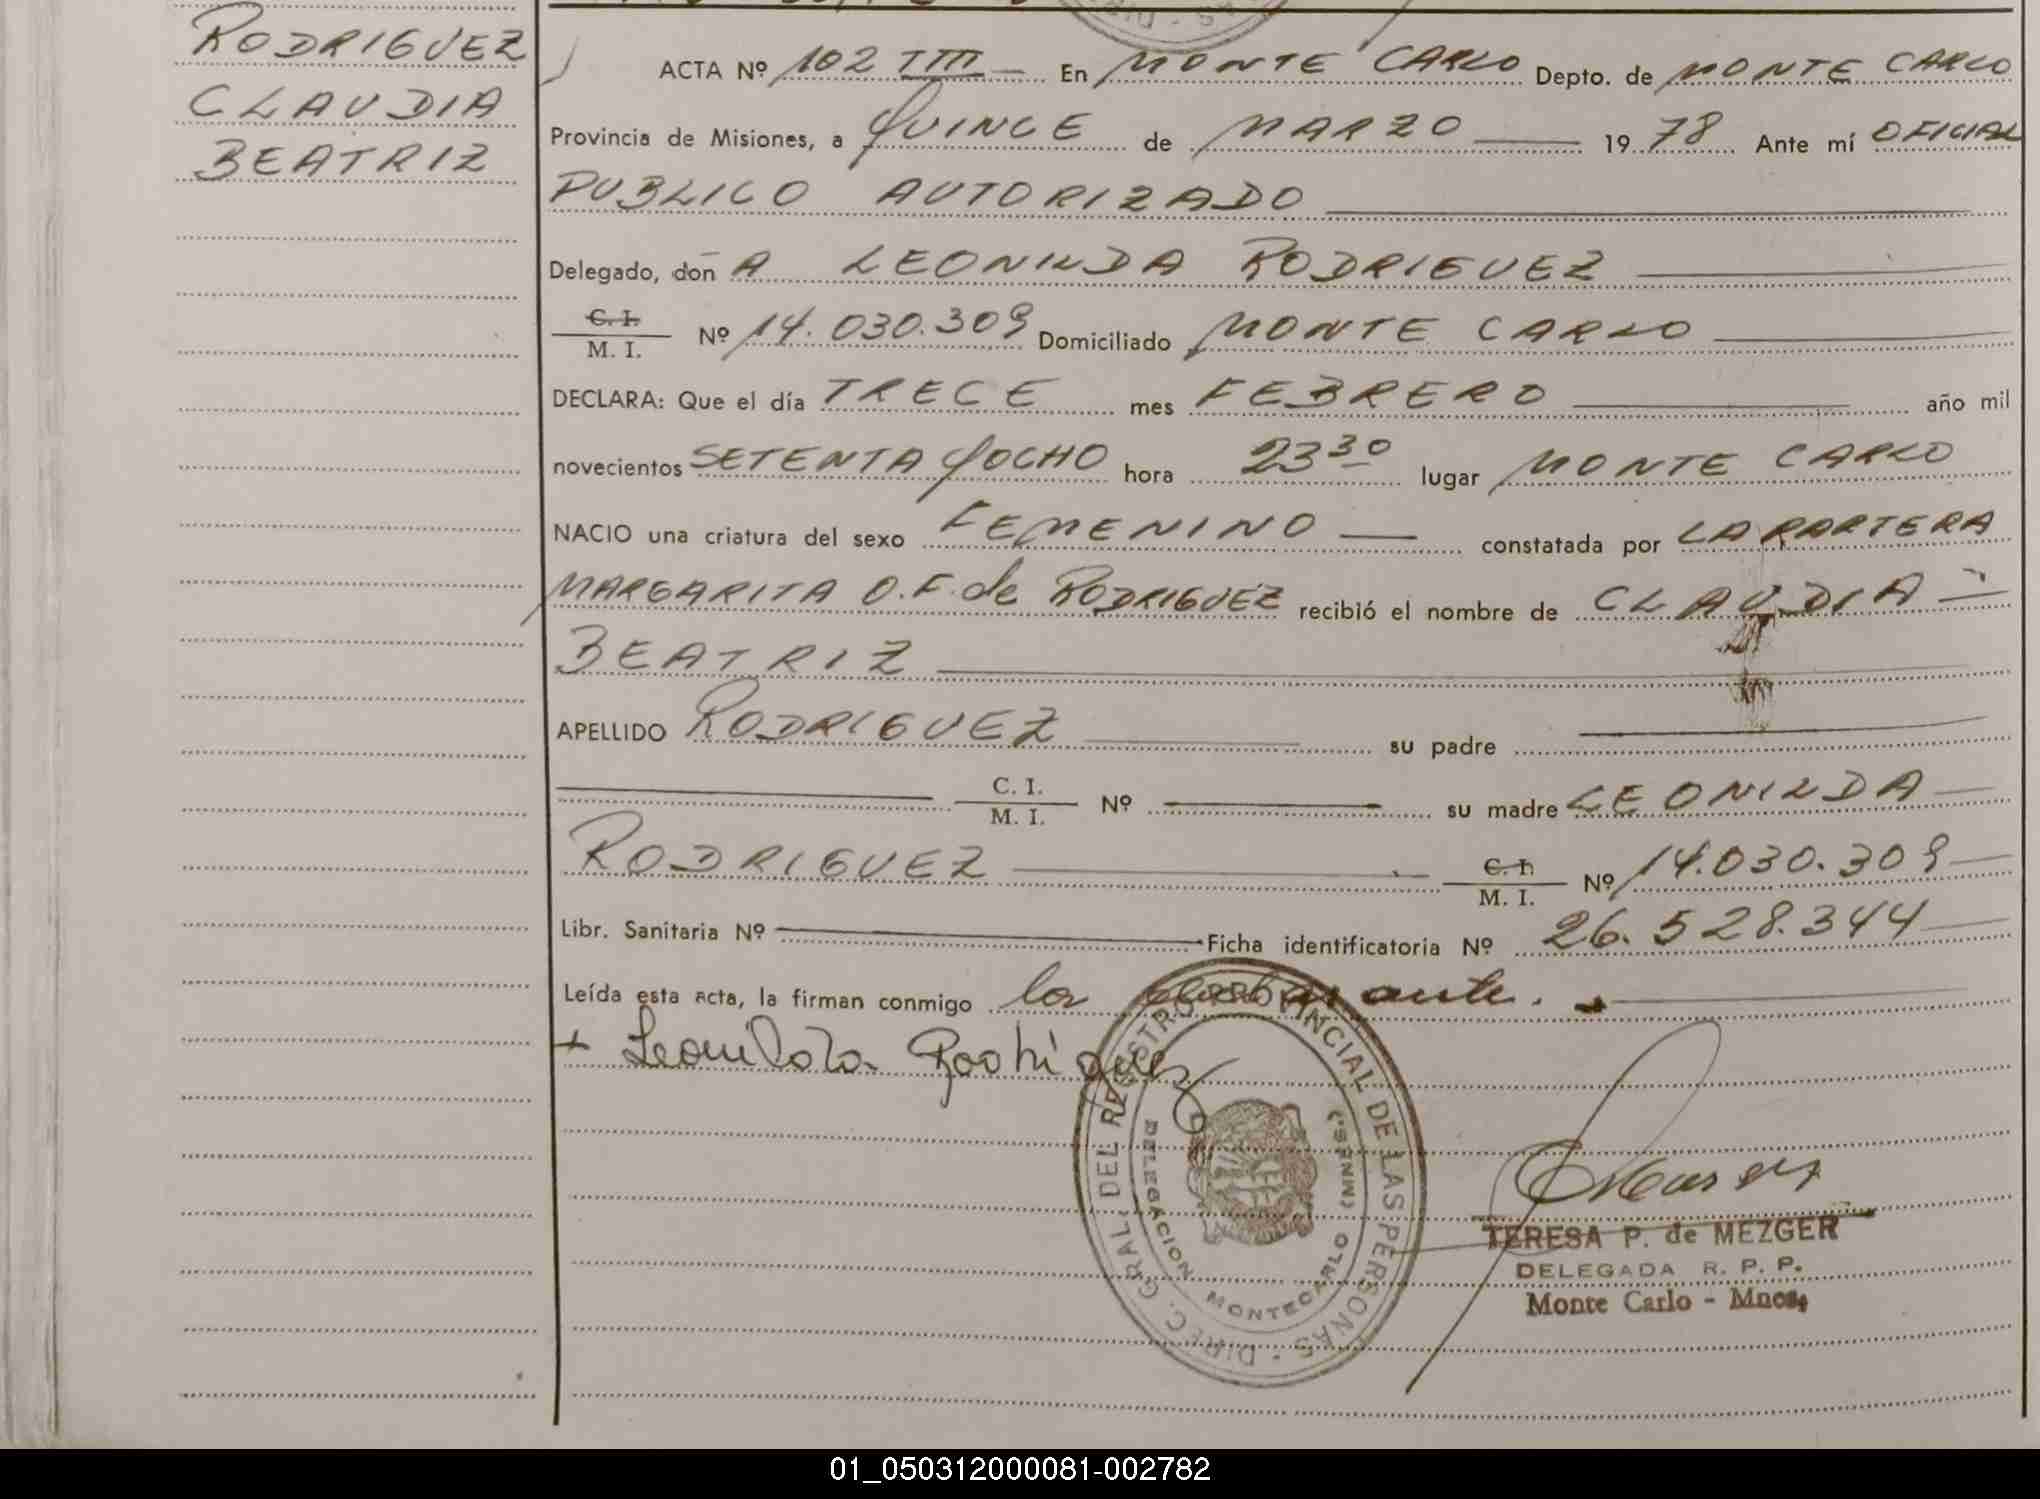 RODRIGUEZ
CLAUDIA
BEATRIZ
ACTA Nº 102 TIII — En MONTE CARLO Depto. de MONTE CARLO
Provincia de Misiones, a QUINCE de MARZO 1978 Ante mí OFICIAL
PUBLICO AUTORIZADO
Delegado, don A LEONILDA RODRIGUEZ
C. I.
M. I. Nº 14.030.309 Domiciliado MONTE CARLO
DECLARA: Que el día TRECE mes FEBRERO año mil
novecientos SETENTA YOCHO hora 23 30 lugar MONTE CARLO
NACIO una criatura del sexo FEMENINO constatada por LA PARTERA
MARGARITA O.F. de RODRIGUEZ recibió el nombre de CLAUDIA
BEATRIZ
APELLIDO RODRIGUEZ su padre
C. I.
M. I. Nº su madre LEONILDA
RODRIGUEZ C. I.
M. I. Nº 14.030.309
Libr. Sanitaria Nº Ficha identificatoria Nº 26.528.344
Leída esta acta, la firman conmigo la declarante.
+ Leonilda Rodriguez
DIREC. GRAL. DEL REGISTRO PROVINCIAL DE LAS PERSONAS -
DELEGACION MONTECARLO (MNES.)
TERESA P. de MEZGER
DELEGADA R. P. P.
Monte Carlo - Mnes.
01_050312000081-002782